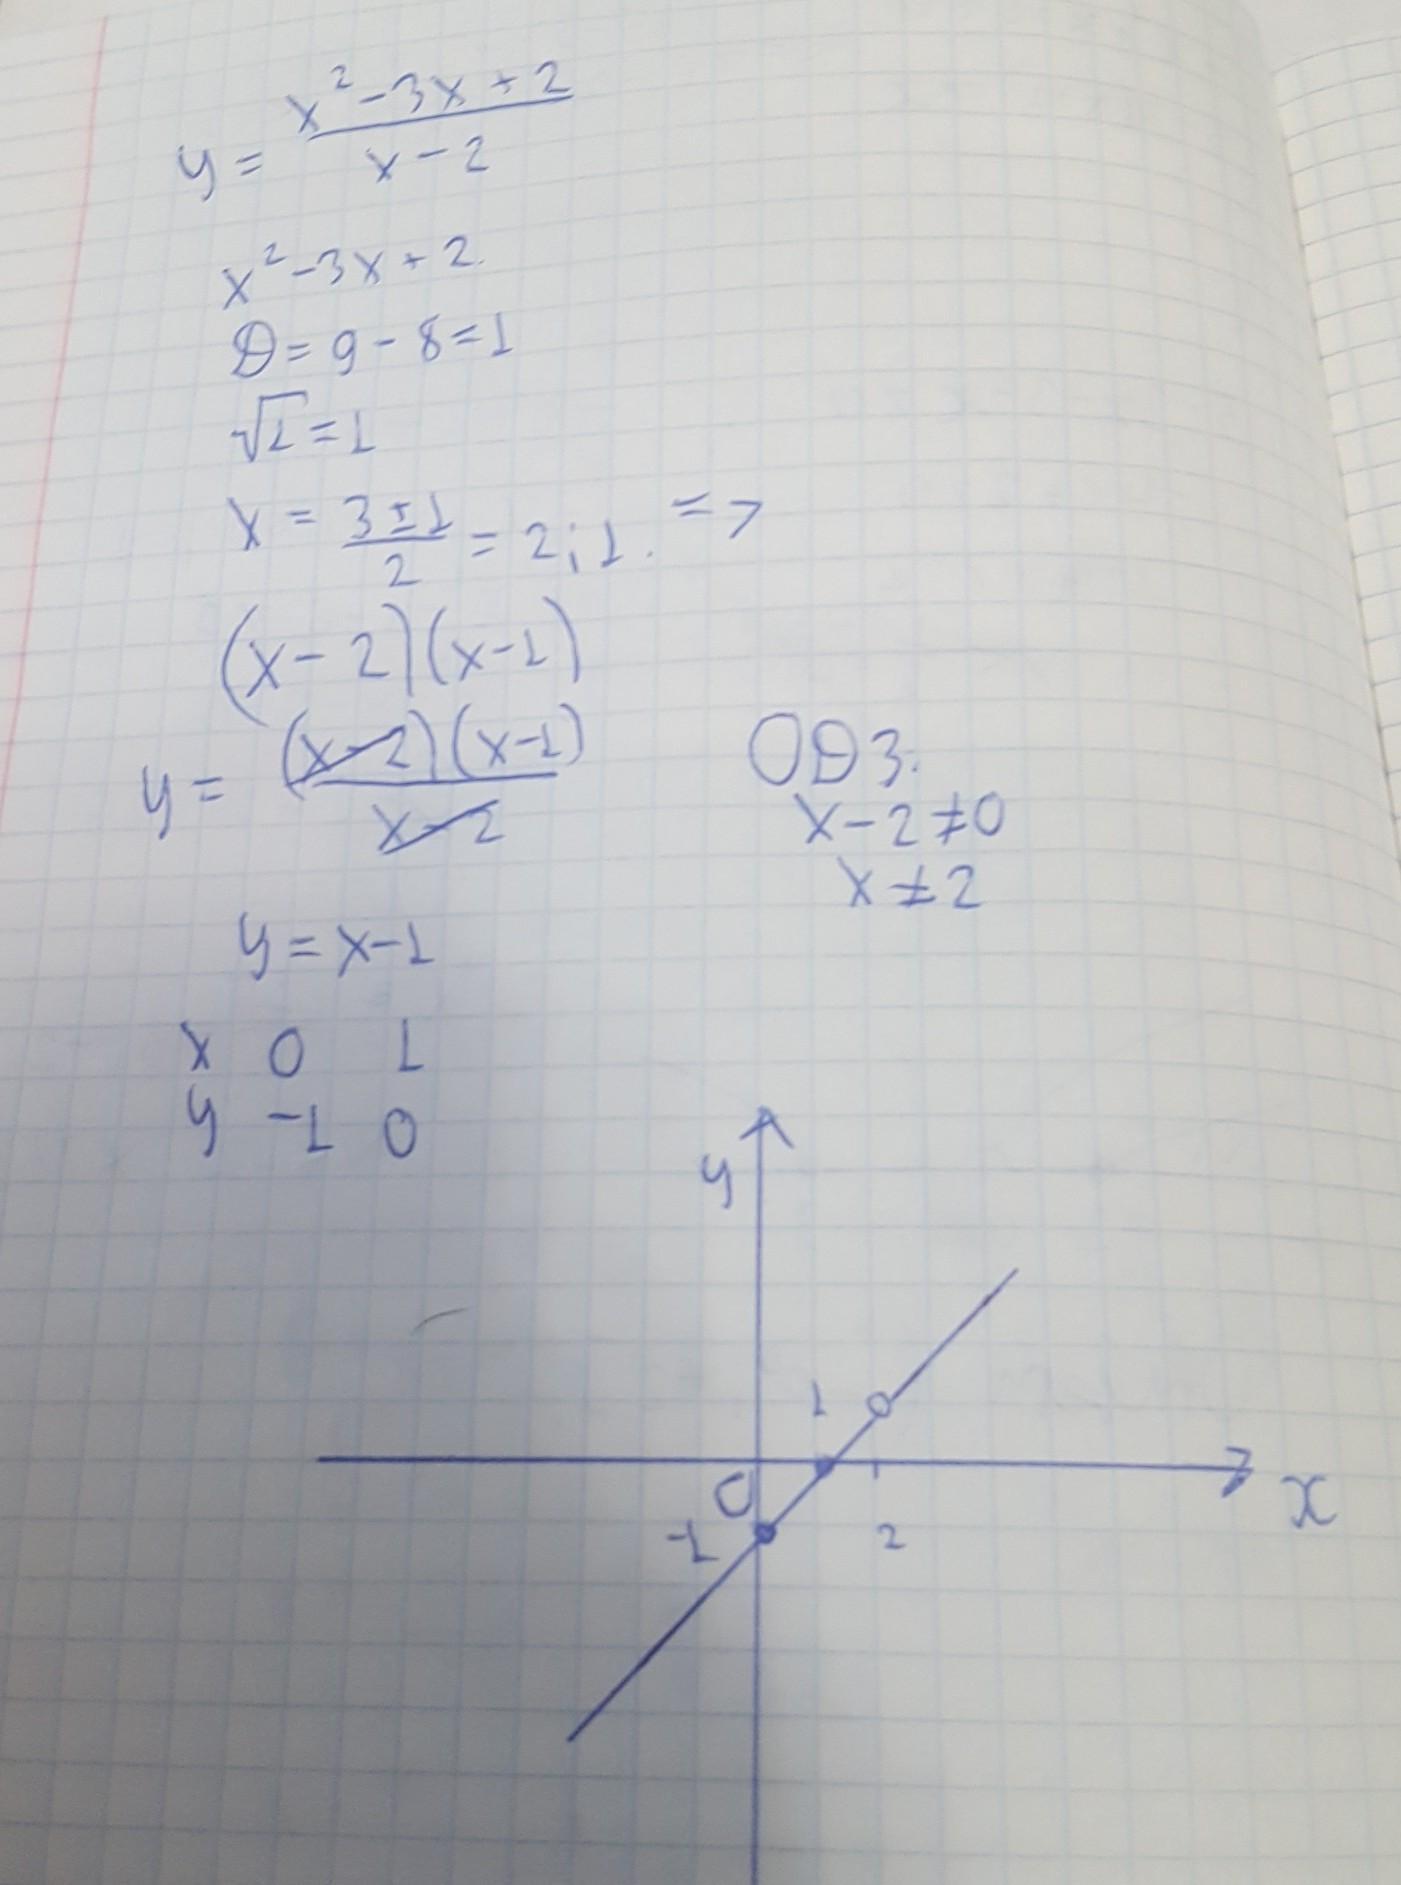 y = (x² - 3x + 2)/(x - 2)
x² - 3x + 2.
D = 9 - 8 = 1
√1 = 1
x = (3 ± 1)/2 = 2; 1. =>
(x - 2)(x - 1)
y = (x - 2)(x - 1)/(x - 2)
ОДЗ:
x - 2 ≠ 0
x ≠ 2
y = x - 1
x 0 1
y -1 0
y
1
0
-1
2
x